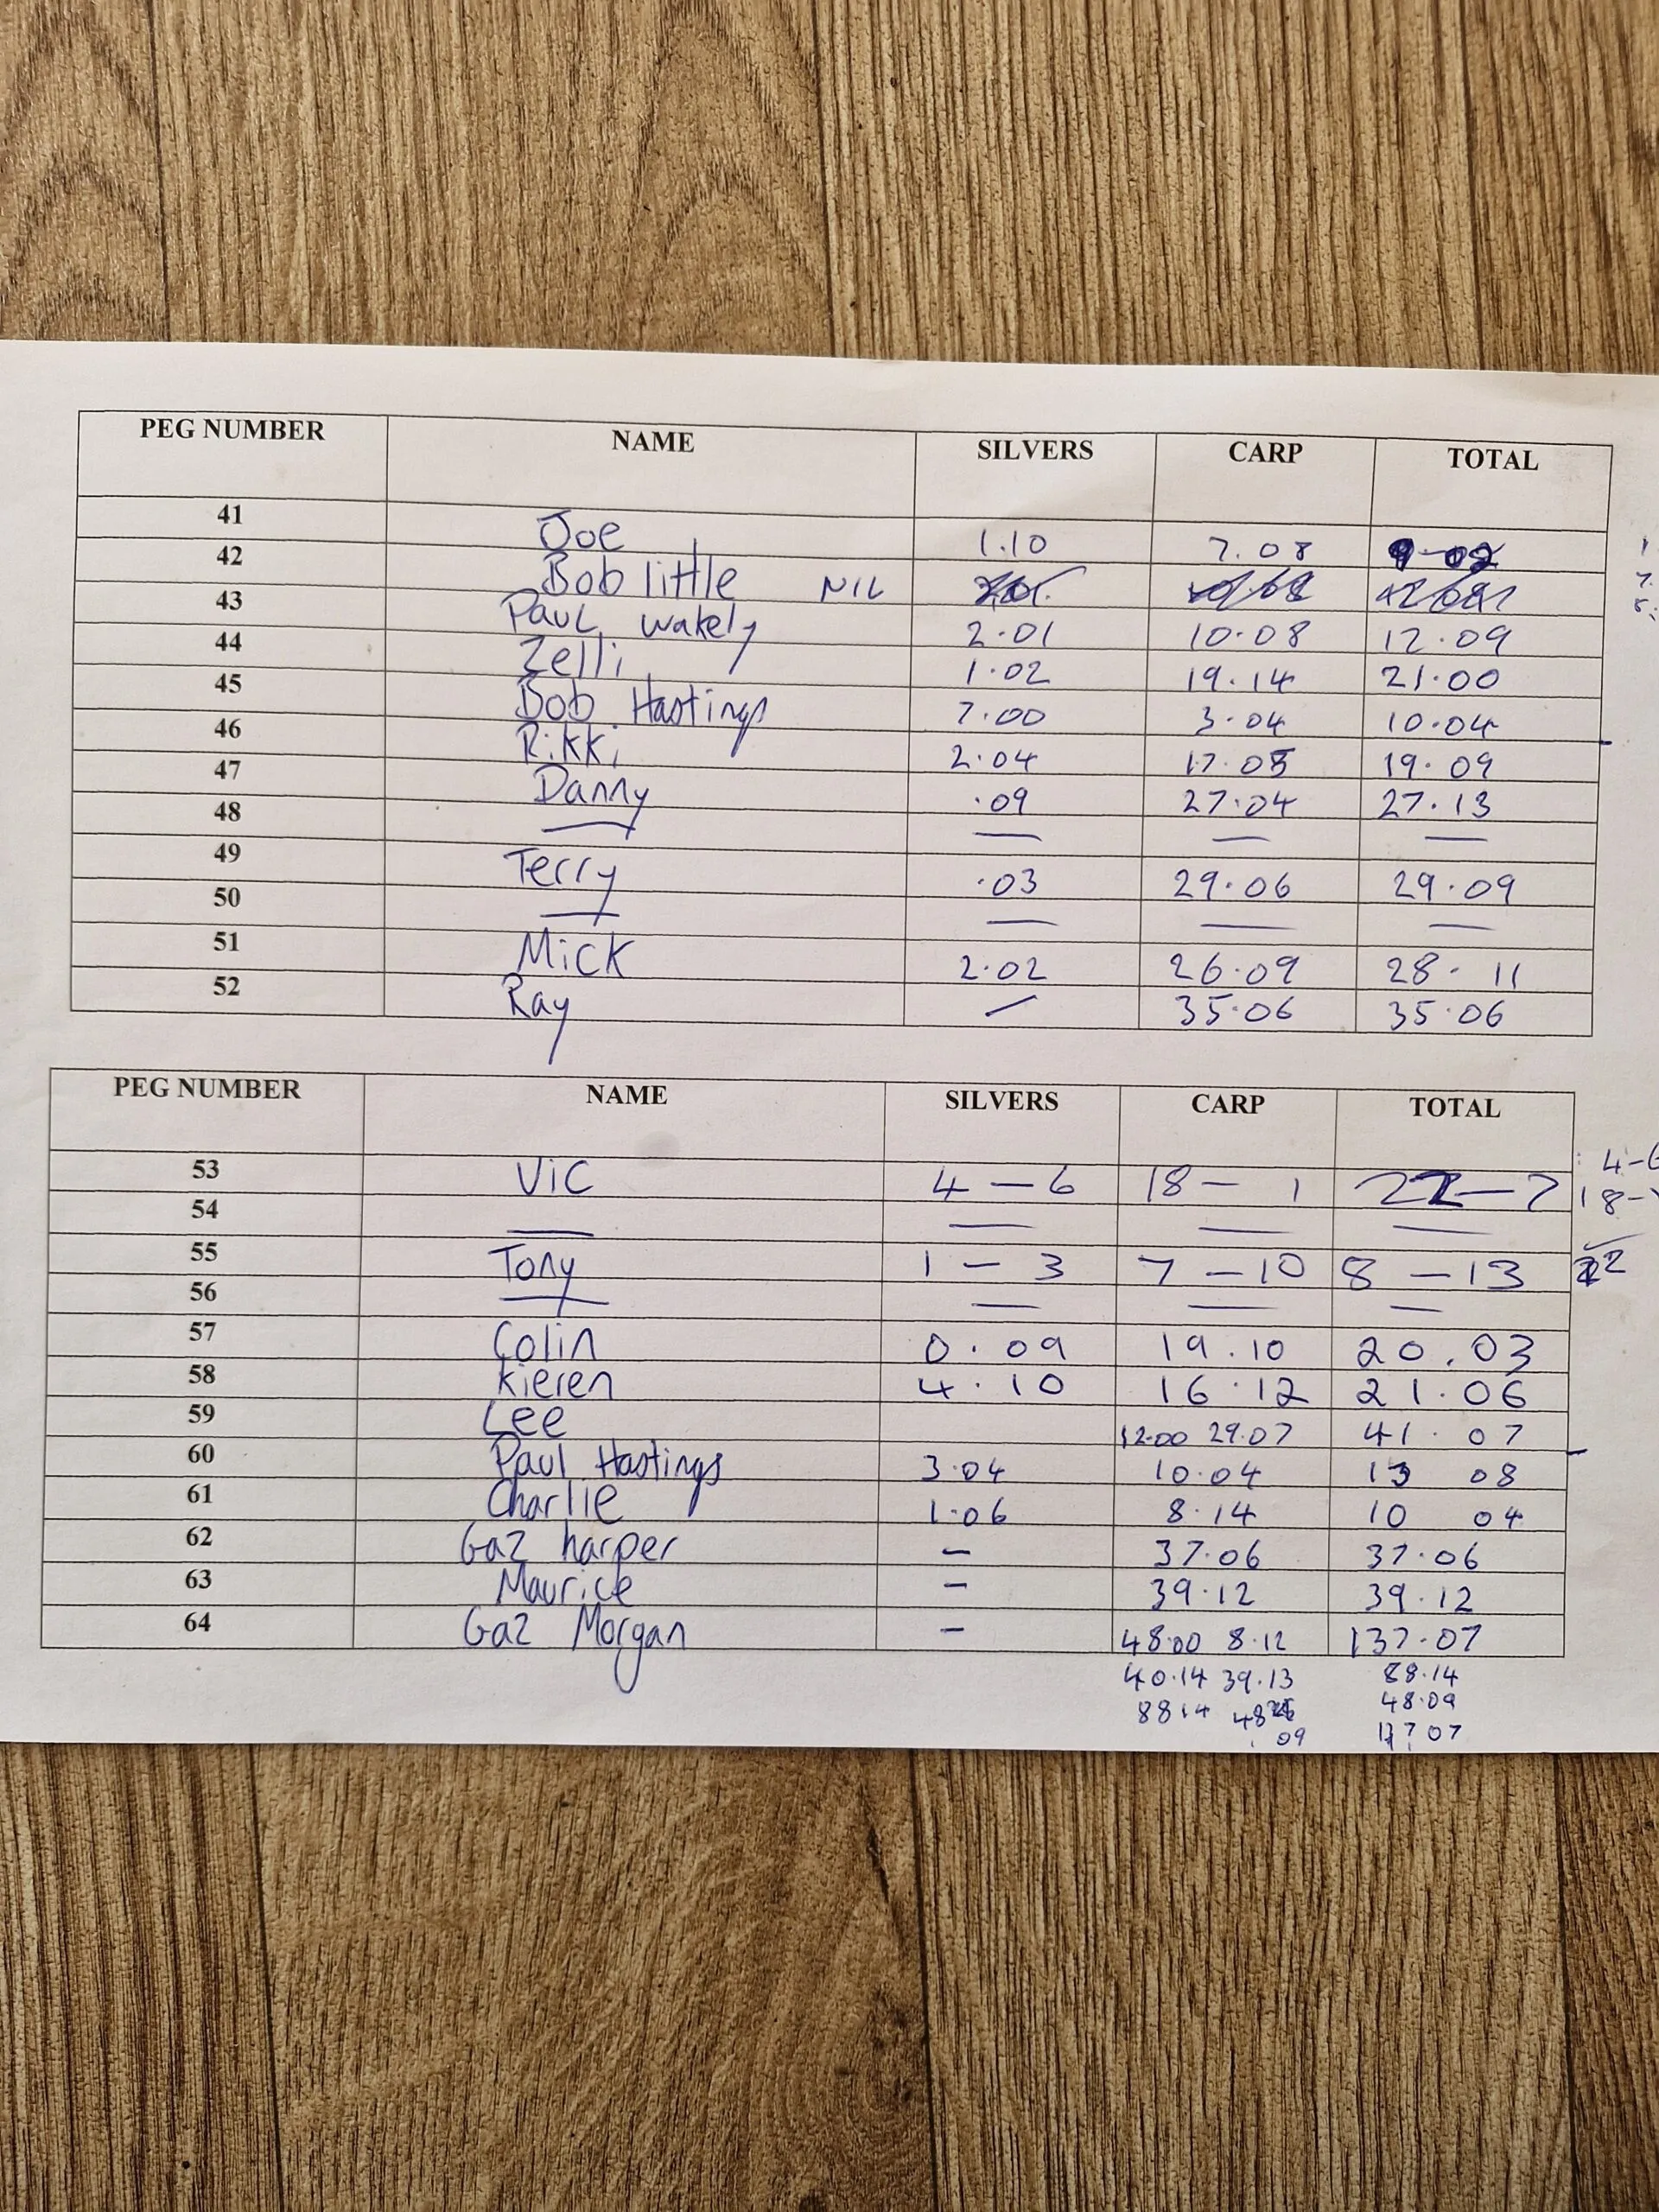 PEG NUMBER NAME SILVERS CARP TOTAL
41 Joe 1.10 7.08 9-02
42 Bob little NIL
43 Paul Wakely 2.01 10.08 12.09
44 Zelli 1.02 19.14 21.00
45 Bob Hastings 7.00 3.04 10.04
46 Rikki 2.04 17.05 19.09
47 Danny .09 27.04 27.13
48 — — — —
49 Terry .03 29.06 29.09
50 — — — —
51 Mick 2.02 26.09 28-11
52 Ray — 35.06 35.06
PEG NUMBER NAME SILVERS CARP TOTAL
53 Vic 4-6 18-1 22-7
54 — — — —
55 Tony 1-3 7-10 8-13 22
56 — — — —
57 Colin 0.09 19.10 20.03
58 Kieren 4.10 16.12 21.06
59 Lee 12.00 29.07 41.07
60 Paul Hastings 3.04 10.04 13 08
61 Charlie 1.06 8.14 10 04
62 Gaz harper - 37.06 37.06
63 Maurice - 39.12 39.12
64 Gaz Morgan - 48.00 8.12 137.07
40.14 39.13 88.14
88 14 48 48.09
09 137 07